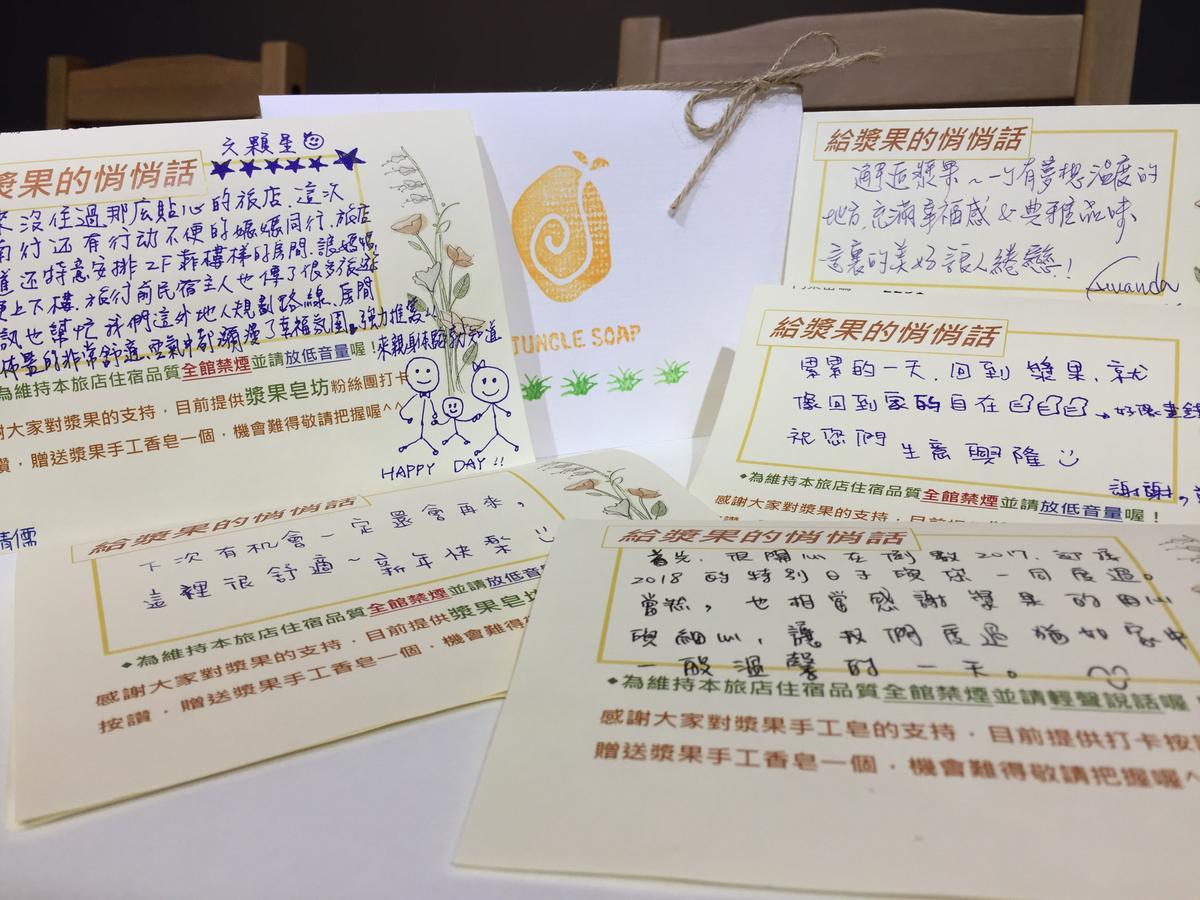 六顆星
漿果的悄悄話
來沒住過那広貼心的旅店.這次
南行还有行动不便的媽媽同行.旅店
道还特意安排2F非樓梯的房間.讓媽媽
便上下樓.旅行前民宿主人也傳了很多旅遊
訊也幫忙我們這外地人規劃路線、房間
佈置的非常舒適.空氣中都瀰漫了幸福氛圍。強力推薦
來親身体驗就知道
為維持本旅店住宿品質全館禁煙並請放低音量喔！
謝大家對漿果的支持，目前提供漿果皂坊粉絲團打卡
讚，贈送漿果手工香皂一個，機會難得敬請把握喔^^
HAPPY DAY!!
JUNGLE SOAP
給漿果的悄悄話
邂逅漿果~一个有夢想溫度的
地方.充滿幸福感&典雅品味
這裏的美好讓人綣戀!
給漿果的悄悄話
累累的一天.回到漿果.就
像回到家的自在
好像畫錯
祝您們生意興隆
謝謝,
◆為維持本旅店住宿品質全館禁煙並請放低音量喔！
感謝大家對漿果的支持，目前提供
給漿果的悄悄話
下次有机會一定還會再來,
這裡很舒適~新年快樂
◆為維持本旅店住宿品質全館禁煙並請放低音
感謝大家對漿果的支持，目前提供漿果皂坊
按讚，贈送漿果手工香皂一個，機會難得
給漿果的悄悄話
首先,很開心在倒數2017,迎接
2018的特別日子與您一同度過。
當然,也相當感謝漿果的用心
與細心,讓我們度過猶如家中
一般溫馨的一天。
◆為維持本旅店住宿品質全館禁煙並請輕聲說話喔
感謝大家對漿果手工皂的支持，目前提供打卡按
贈送漿果手工香皂一個，機會難得敬請把握喔^